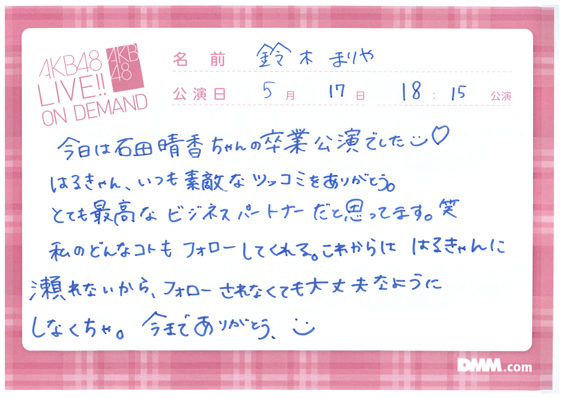 AKB48
LIVE!!
ON DEMAND
AKB
48
名前 鈴木まりや
公演日 5月 17日 18:15 公演
今日は石田晴香ちゃんの卒業公演でした♡
はるきゃん、いつも素敵なツッコミをありがとう。
とても最高なビジネスパートナーだと思ってます。笑
私のどんなコトもフォローしてくれる。これからは はるきゃんに
瀬れないから、フォローされなくても大丈夫なように
しなくちゃ。今までありがとう、
DMM.com